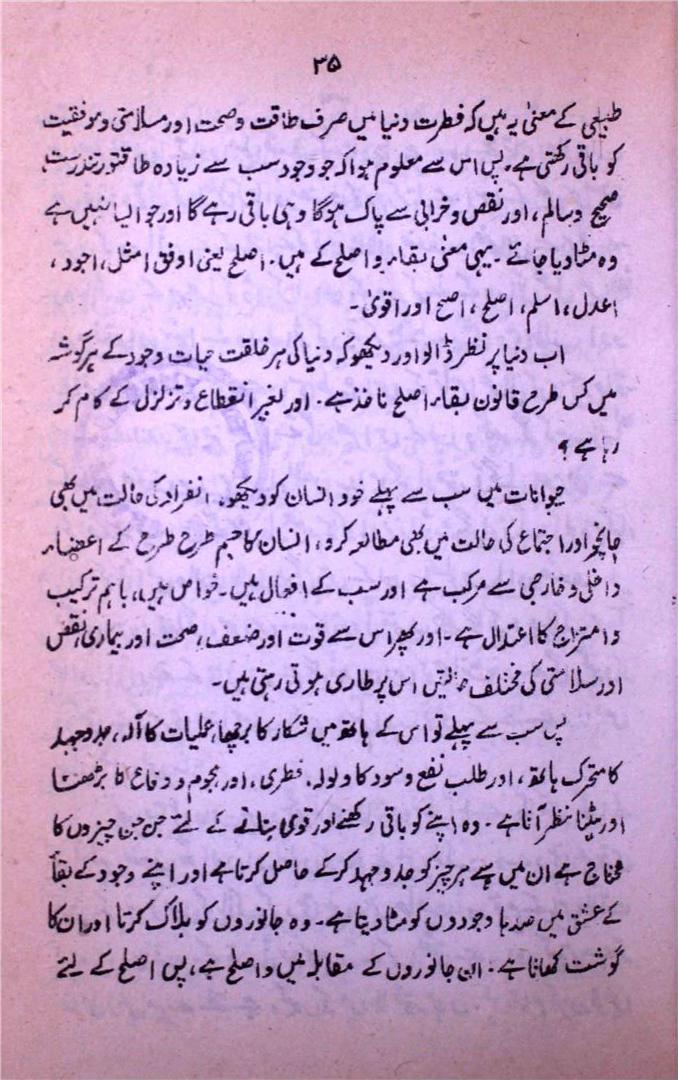 ۳۵
طبیعی کے معنیٰ یہ ہیں کہ فطرت دنیا میں صرف طاقت وصحت اور سلامتی وموفقیت
کو باقی رکھتی ہے۔ پس اس سے معلوم ہوا کہ جو وجود سب سے زیادہ طاقتور تندرست،
صحیح وسالم، اور نقص وخرابی سے پاک ہوگا وہی باقی رہے گا اور جو ایسا نہیں ہے
وہ مٹادیا جائے۔ یہی معنیٰ بقاء واصلح کے ہیں۔ اصلح یعنی اوفق امثل، اجود،
اعدل، اسلم، اصلح، اصح اور اقویٰ۔
اب دنیا پر نظر ڈالو اور دیکھو کہ دنیا کی ہر خلقت حیات وجود کے ہر گوشہ
میں کس طرح قانون بقاء اصلح نافذ ہے۔ اور بغیر انقطاع وتزلزل کے کام کر
رہا ہے؟
حیوانات میں سب سے پہلے خود انسان کو دیکھو۔ انفراد کی حالت میں بھی
جانچو اور اجتماع کی حالت میں بھی مطالعہ کرو، انسان کا جسم طرح طرح کے اعضاء
داخلی وخارجی سے مرکب ہے اور سب کے افعال ہیں۔ خواص ہیں، باہم ترکیب
وامتزاج کا اعتدال ہے۔ اور پھر اس سے قوت اور ضعف، صحت اور بیماری، نقص
اور سلامتی کی مختلف حالتیں اس پر طاری ہوتی رہتی ہیں۔
پس سب سے پہلے تو اس کے ہاتھ میں شکار کا برچھا، عملیات کا آلہ، جدوجہد
کا متحرک ہاتھ، اور طلب نفع وسود کا ولولہ فطری، اور ہجوم ودفاع کا بڑھنا
اور ہٹنا نظر آتا ہے۔ وہ اپنے کو باقی رکھنے اور قوی بنانے کے لئے جن جن چیزوں کا
محتاج ہے ان میں سے ہر چیز کو جدوجہد کرکے حاصل کرتا ہے اور اپنے وجود کے بقا
کے عشق میں صدہا وجودوں کو مٹا دیتا ہے۔ وہ جانوروں کو ہلاک کرتا اور ان کا
گوشت کھاتا ہے۔ ان جانوروں کے مقابلہ میں واصلح ہے، پس اصلح کے لئے